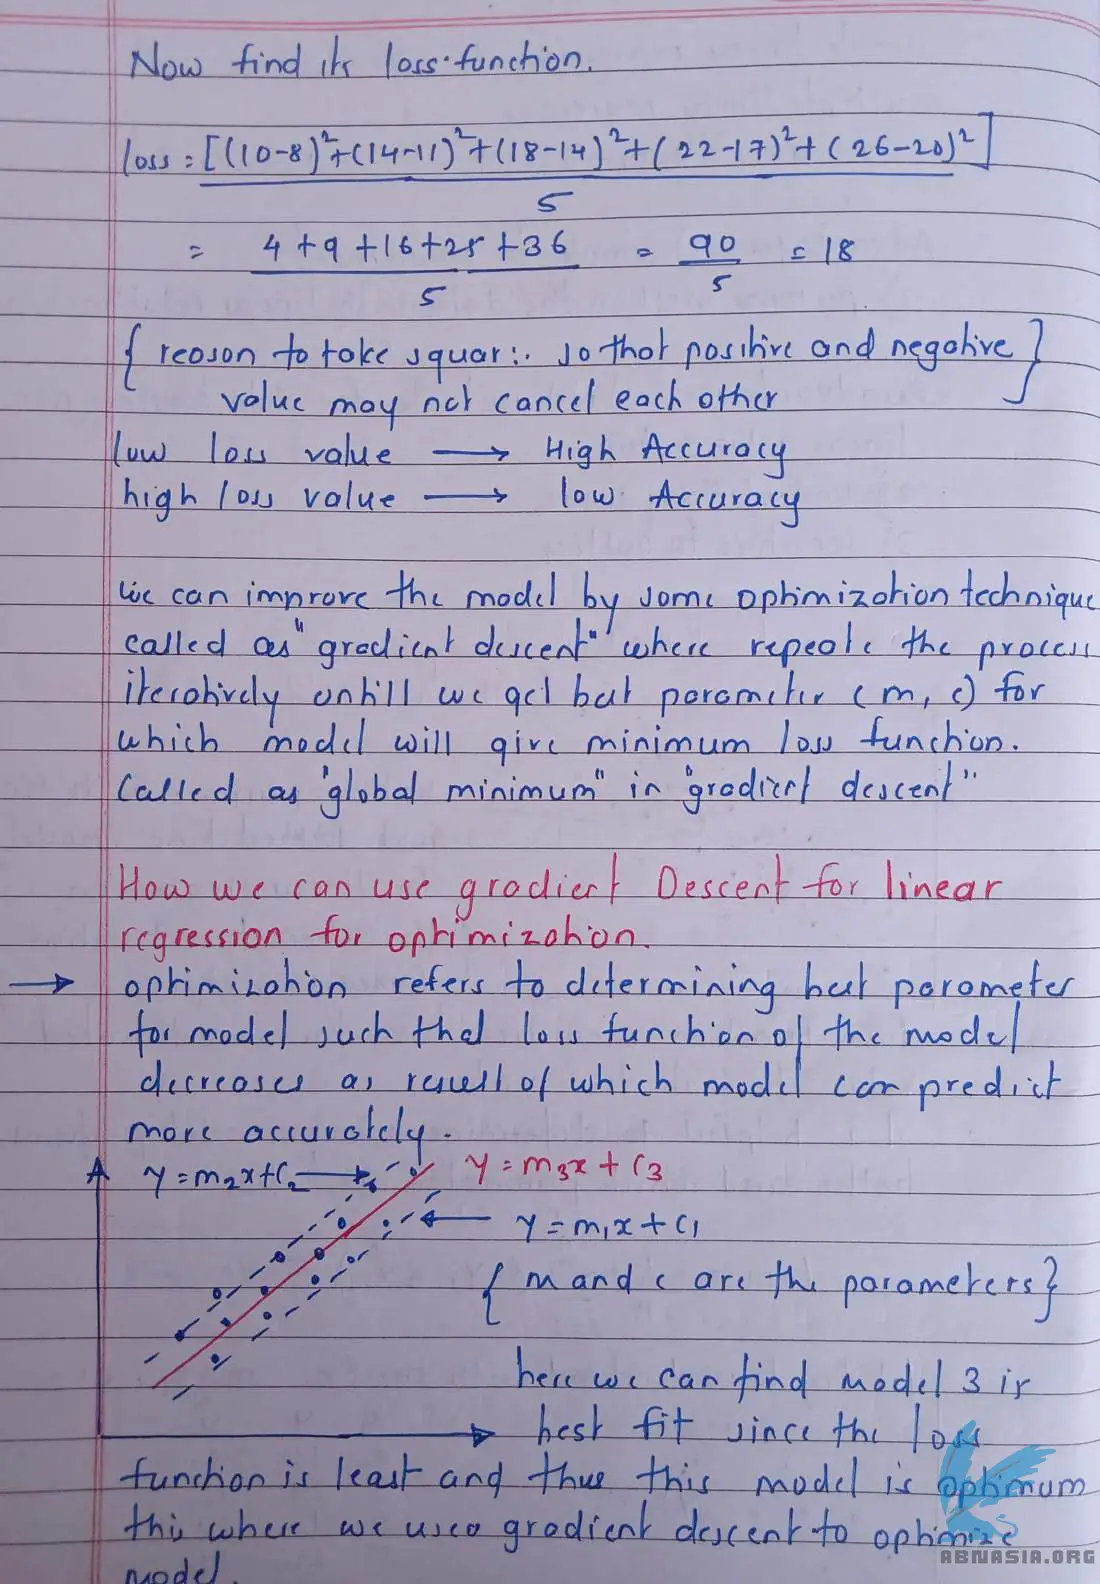 Now find its loss function.
loss = [(10-8)²+(14-11)²+(18-14)²+(22-17)²+(26-20)²]
5
= 4+9+16+25+36 = 90 = 18
5 5
{ reason to take squar:. so that positive and negative }
value may not cancel each other
low loss value → High Accuracy
high loss value → low Accuracy
We can improve the model by some optimization technique
called as "gradient descent" where repeate the process
iteratively untill we get best parameter (m, c) for
which model will give minimum loss function.
Called as "global minimum" in "gradient descent"
How we can use gradient Descent for linear
regression for optimization.
→ optimization refers to determining best parameter
for model such that loss function of the model
decreases as result of which model can predict
more accurately.
y=m₂x+c₂ → y=m₃x+c₃
← y=m₁x+c₁
{ m and c are the parameters }
here we can find model 3 is
best fit since the loss
function is least and thus this model is optimum
this where we used gradient descent to optimize
model.
ABNASIA.ORG